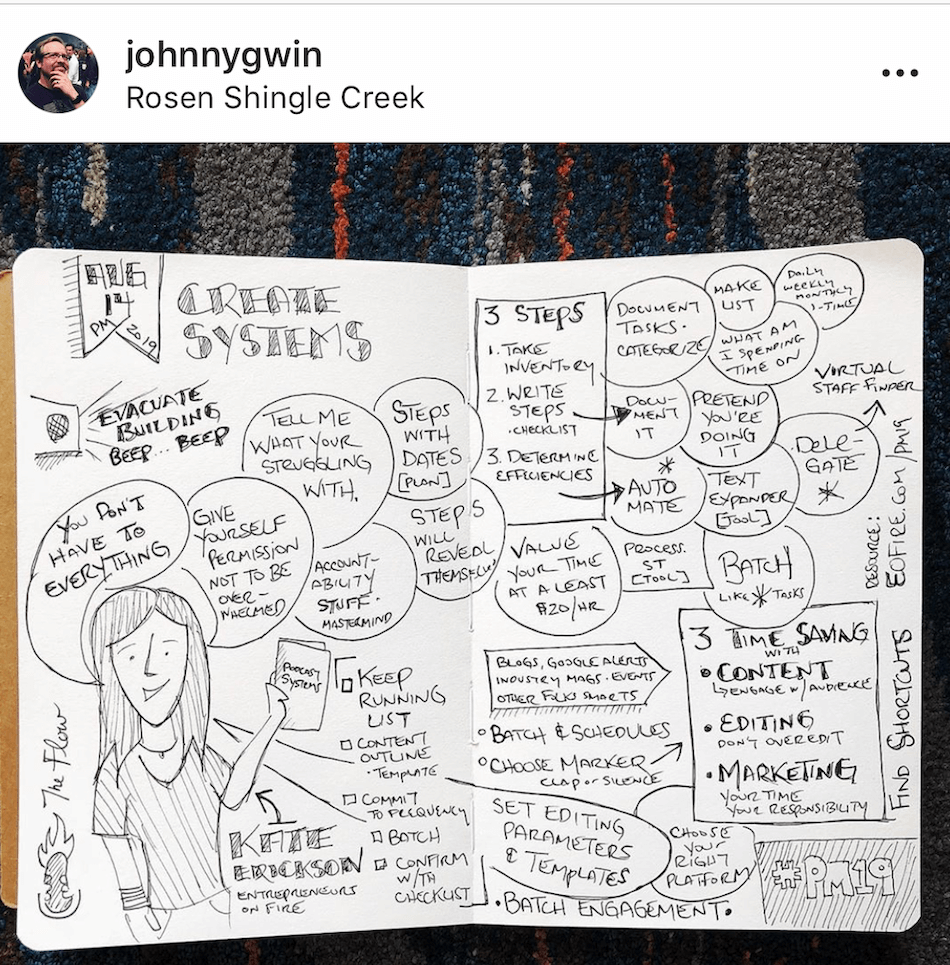 johnnygwin
Rosen Shingle Creek
AUG
14
PM 2019
CREATE
SYSTEMS
EVACUATE
BUILDING
BEEP... BEEP
TELL ME
WHAT YOUR
STRUGGLING
WITH.
STEPS
WITH
DATES
[PLAN]
YOU DON'T
HAVE TO
EVERYTHING
GIVE
YOURSELF
PERMISSION
NOT TO BE
OVER-
WHELMED
ACCOUNT-
ABILITY
STUFF.
MASTERMIND
STEPS
WILL
REVEAL
THEMSELVES
PODCAST
SYSTEMS
KEEP
RUNNING
LIST
CONTENT
OUTLINE
• TEMPLATE
COMMIT
TO FREQUENCY
BATCH
CONFIRM
WITH
CHECKLIST
The Flow
KATE
ERICKSON
ENTREPRENEURS
ON FIRE
3 STEPS
1. TAKE
INVENTORY
2. WRITE
STEPS
• CHECKLIST
3. DETERMINE
EFFICIENCIES
DOCUMENT
TASKS.
CATEGORIZE
MAKE
LIST
DAILY
WEEKLY
MONTHLY
1-TIME
WHAT AM
I SPENDING
TIME ON
DOCU-
MENT
IT
PRETEND
YOU'RE
DOING
IT
VIRTUAL
STAFF FINDER
DELE-
GATE
*
*
AUTO
MATE
TEXT
EXPANDER
[TOOL]
VALUE
YOUR TIME
AT A LEAST
$20/HR
PROCESS.
ST
[TOOL]
BATCH
LIKE * TASKS
RESOURCE:
EOFIRE.COM/PM19
BLOGS, GOOGLE ALERTS
INDUSTRY MAGS. EVENTS
OTHER FOLKS SMARTS
BATCH & SCHEDULES
CHOOSE MARKER
CLAP or SILENCE
3 TIME SAVING
WITH
• CONTENT
ENGAGE W/ AUDIENCE
• EDITING
DON'T OVEREDIT
• MARKETING
YOUR TIME
YOUR RESPONSIBILITY
FIND SHORTCUTS
SET EDITING
PARAMETERS
& TEMPLATES
CHOOSE
YOUR
RIGHT
PLATFORM
• BATCH ENGAGEMENT •
#PM19